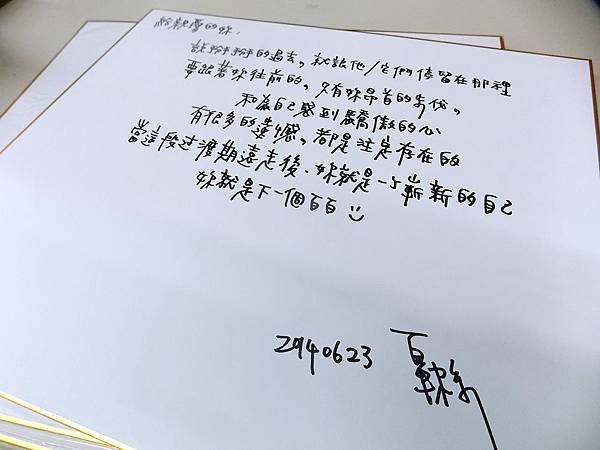 給親愛的妳，
該掰掰的過去，就讓他/它們停留在那裡
要跟著妳往前的，只有妳昂首的步伐，
和為自己感到驕傲的心
有很多的遺憾，都是注定存在的
當這度过渡期遠走後、妳就是一个嶄新的自己
妳就是下一個百百
20140623